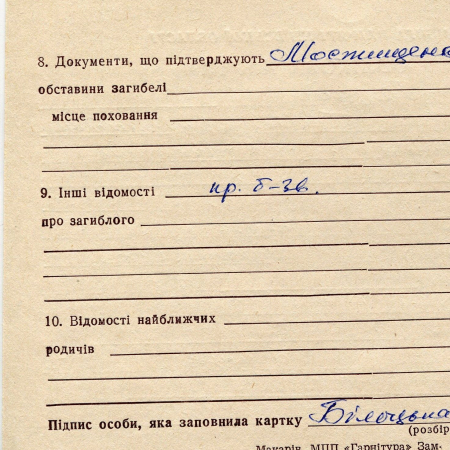 8. Документи, що підтверджують
обставини загибелі
місце поховання
9. Інші відомості пр. б-зв.
про загиблого
10. Відомості найближчих
родичів
Підпис особи, яка заповнила картку Білоцька
(розбір
Макарів, МПП «Гарнітура» Зам-